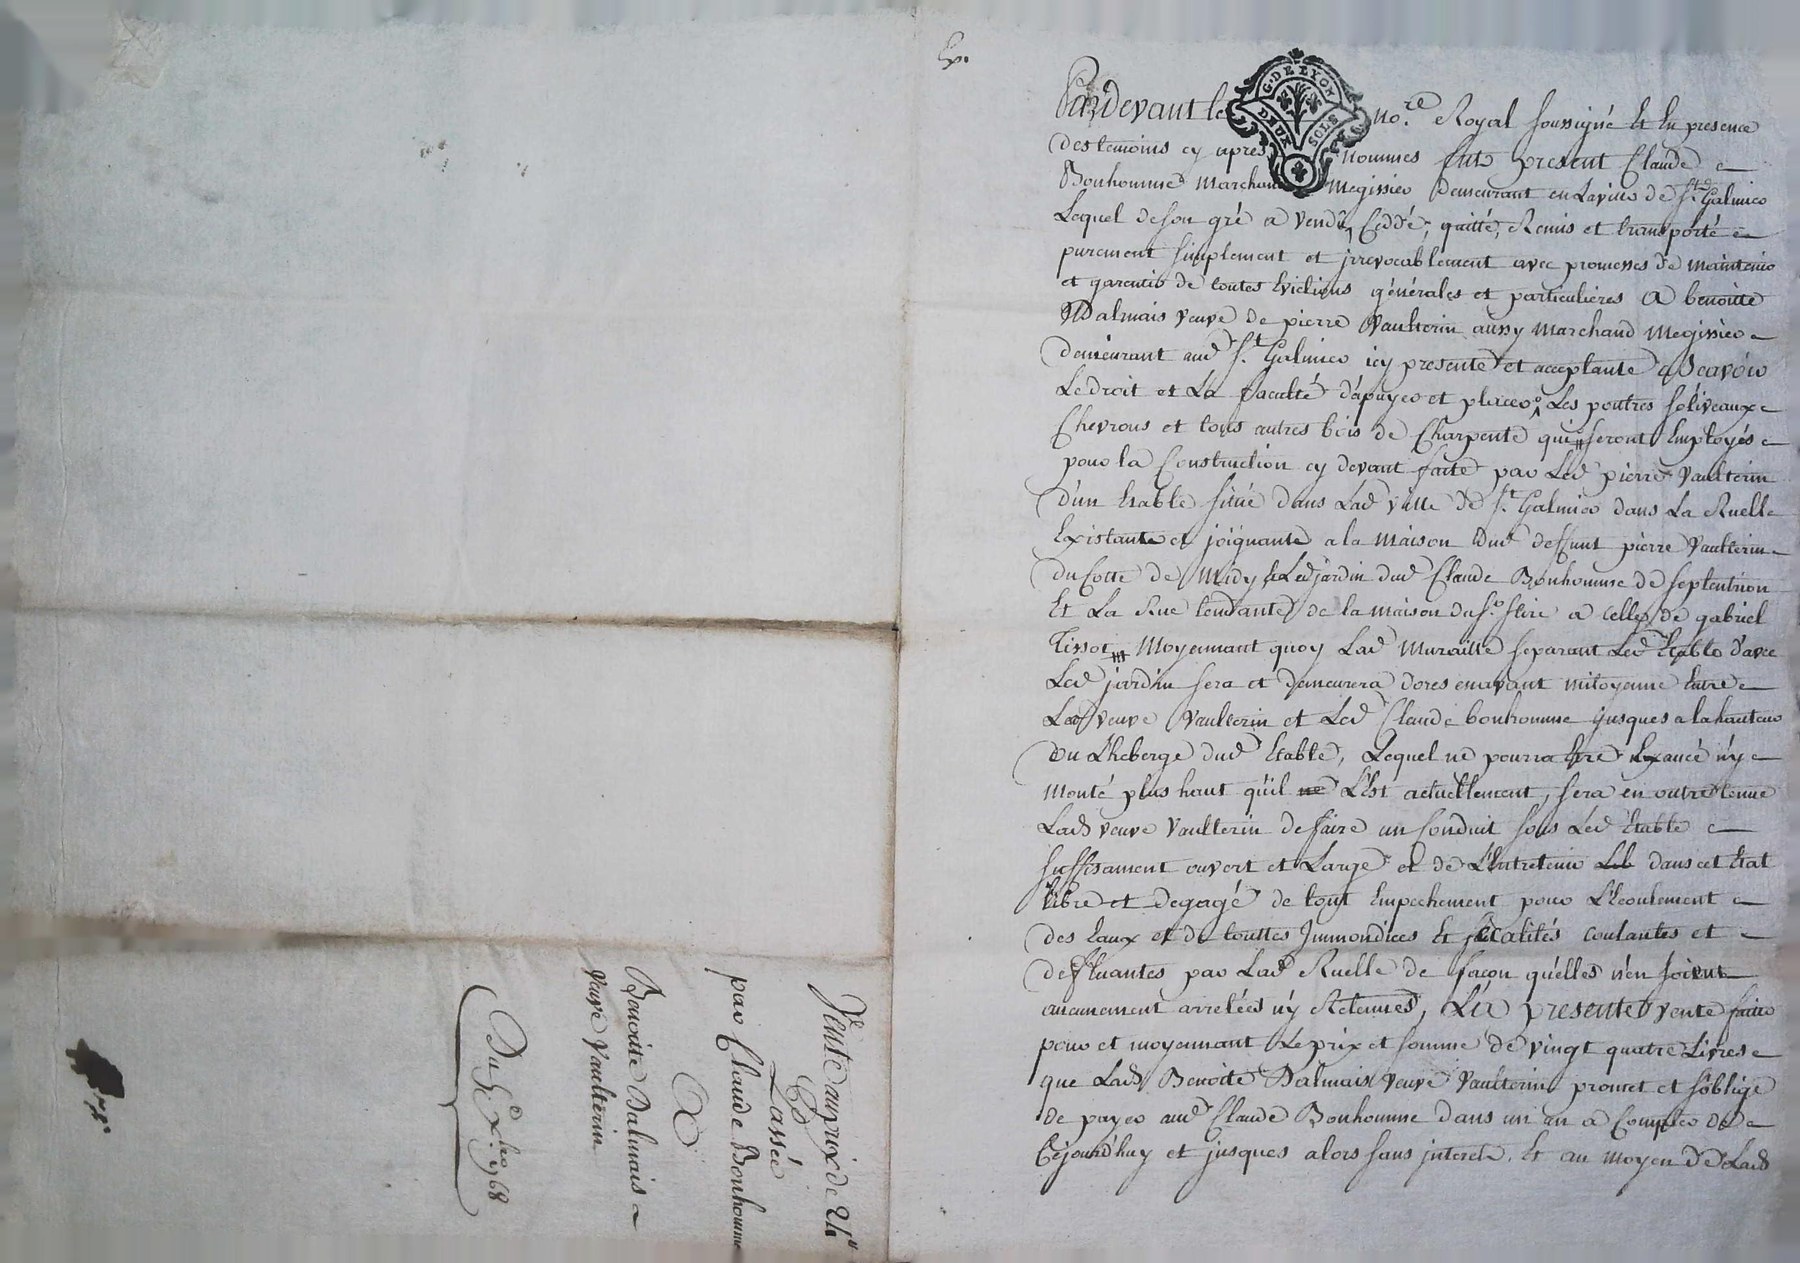 Ex.
G. DE LYON
DEUX SOLS
Pardevant le no.re Royal soussigné Et En presence
des temoins cy apres nommés fut present Claude
Bonhomme marchand megissier demeurant en Laville de St. Galmier
Lequel de son gré a vendu, Ceddé, quitté, Remis et transporté
purement simplement et jrrevocablement avec promesses de maintenir
et garentir de toutes Evictions générales et particulières a benoitte
Dalmais veuve de pierre Vaulterin aussy marchand megissier
demeurant aud St. Galmier icy presente et acceptante a Scavoir
Le droit et La faculté d'apuyer et placer Les poutres soliveaux
Chevrons et tous autres bois de Charpente qui seront Employés
pour la Construction cy devant faite par Led pierre Vaulterin
d'un Etable situé dans Lad ville de St. Galmier dans La Ruelle
Existante et joignante a la maison dud deffunt pierre Vaulterin
du Cotté de Midy Led jardin dud Claude Bonhomme de septentrion
Et La Rue tendante de la maison du Sr. a celle de gabriel
Tissot Moyennant quoy Lad muraille separant Led Etable d'avec
Led jardin sera et demeurera dores enavant mitoyenne Entre
Lad veuve Vaulterin et Led Claude bonhomme jusques a la hauteur
du L'heberge dud Etable, Lequel ne pourra Etre Exaucé n'y
monté plus haut qu'il ne L'Est actuellement, sera en outre tenue
Lad veuve Vaulterin de faire un Conduit sous Led Etable
suffisament ouvert et Large et de L'Entretenir dans cet Etat
libre et degagé de tout Empechement pour L'Ecoulement
des Eaux et de touttes Jmmondices Et fécalités coulantes et
defluantes par Lad Ruelle de façon qu'elles n'en soient
aucunement arretées n'y Retenues, La presente vente faite
pour et moyennant Le prix et somme de vingt quatre Livres
que Lad Benoite Dalmais veuve Vaulterin promet et s'oblige
de payer aud Claude Bonhomme dans un an a Compter de
Cejourd'huy et jusques alors sans jnterets. Et au moyen de Lad
Vente au prix de 24tt
Passée
par Claude Bonhomme
A
Benoitte Dalmais
veuve Vaulterin
Du xbre 1768